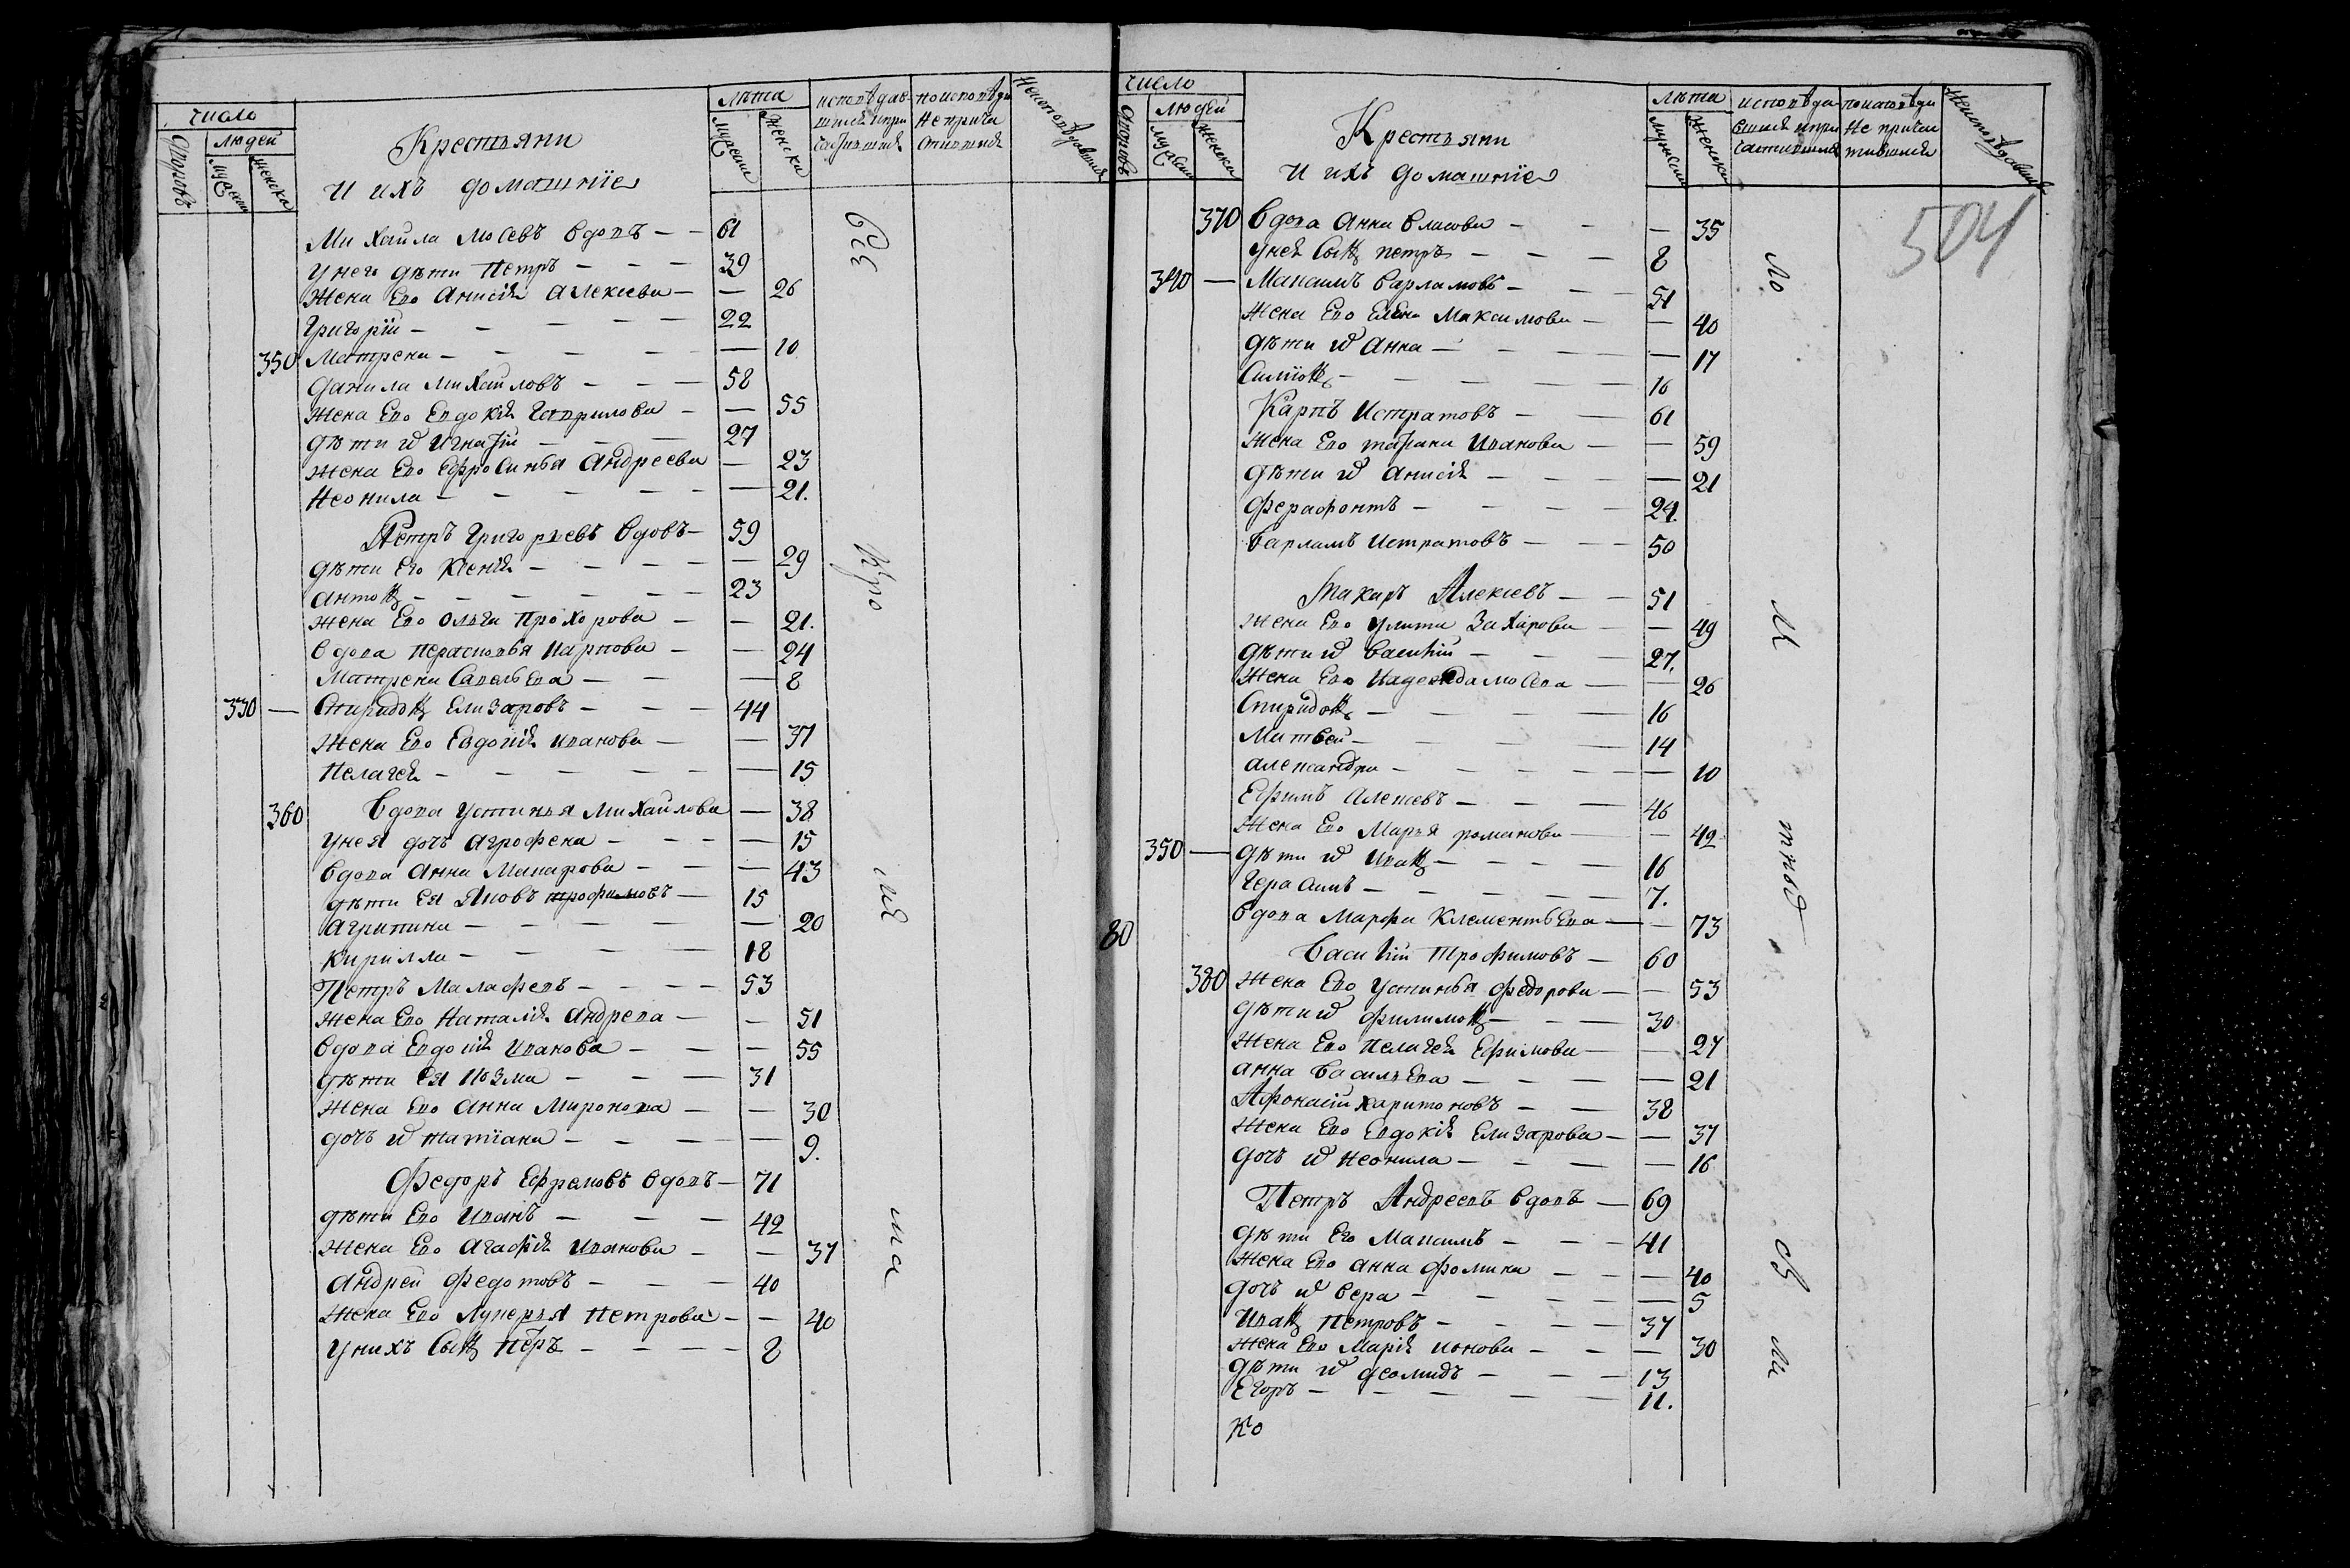 число
людей
дворовъ
мужеска
женска
Крестьяни
и ихъ домашнїе
лѣта
мужеска
женска
исповѣдав
шихся и при
частившихся
по исповѣди
не прича
стившихся
неисповѣдавшихся
Михайла Мосевъ вдовъ — — 61
У него дѣти Петръ — — — 39
Жена Его Анисія Алексеева — — 26
Григорїй — — — — — 22
350 Матрена — — — — — — 10
Данила Михайловъ — — — 58
Жена Его Евдокія Гаврилова — — 55
дѣти и Игнатїй — — — 27
Жена Его Ефросинья Андреева — 23
Неонила — — — — — — 21.
Петръ Григорьевъ вдовъ — 59
дѣти Его Ксенія — — — — — 29
Антонъ — — — — — — 23
Жена Его Ольга Прохорова — — 21.
вдова Парасковья Карпова — — 24
Матрена Савельева — — — 8
330 — Спиридонъ Елизаровъ — — — 44
Жена Его Евдокія Иванова — — 37
Пелагея — — — — — — — 15
360 Вдова Устинья Михайлова — 38
У нея дочь Агрофена — — — — 15
вдова Анна Макарова — — — 43
дѣти Ея Яковъ Трофимовъ — 15
Агрипина — — — — — — 20
Кирилла — — — — — 18
Петръ Малафеевъ — — — — 53
Жена Его Наталія Андреева — — 51
Вдова Евдокія Иванова — — — 55
дѣти Ея Козма — — — 31
Жена Его Анна Миронова — — 30
дочь и Татїана — — — — 9.
Федоръ Ефремовъ вдовъ — 71
дѣти Его Иванъ — — — 42
Жена Его Агафія Иванова — — 37
Андрей Федотовъ — — — 40
Жена Его Лукерья Петрова — — 40
У нихъ сынъ Петръ — — — — 8
число
дворовъ
людей
мужеска
женска
Крестьяни
и ихъ домашнїе
лѣта
мужеска
женска
исповѣда
вшихся и при
частившихся
по исповѣди
не прича
тившихся
неисповѣдавшихся
504
370 вдова Анна Власова — — — 35
У ней сынъ Петръ — — — 8
340 — Максимъ Варламовъ — — — 51
Жена Его Елена Максимова — — 40
дѣти и Анна — — — — — 17
Симїонъ — — — — — — 16
Карпъ Истратовъ — — 61
Жена Его Татїана Иванова — — 59
дѣти и Анисія — — — — 21
Ферафонтъ — — — — 24.
Варламъ Истратовъ — — — 50
Макаръ Алексевъ — — 51
Жена Его Улита Захарова — — 49
дѣти и Василїй — — — 27.
Жена Его Надежда Мосева — — 26
Спиридонъ — — — — — 16
Матвей — — — — — 14
Александра — — — — — — 10
Ефимъ Алексевъ — — — 46
Жена Его Марья Романова — — 42
350 — дѣти и Иванъ — — — — 16
Герасимъ — — — — — 7.
80 вдова Марфа Клементьева — — 73
Василїй Трофимовъ — 60
380 Жена Его Устинья Федорова — — 53
дѣти и Филимонъ — — — 30
Жена Его Пелагея Ефимова — — 27
Анна Васильева — — — — 21
Афонасїй Харитоновъ — — 38
Жена Его Евдокія Елизарова — — 37
дочь и Неонила — — — — 16
Петръ Андреевъ вдовъ — 69
дѣти Его Максимъ — — — 41
Жена Его Анна Фомина — — — 40
дочь и Вера — — — — — 5
Иванъ Петровъ — — — — 37
Жена Его Марія Ионова — — — 30
дѣти и Деомидъ — — — 13
Егоръ — — — — — 11.
Ко